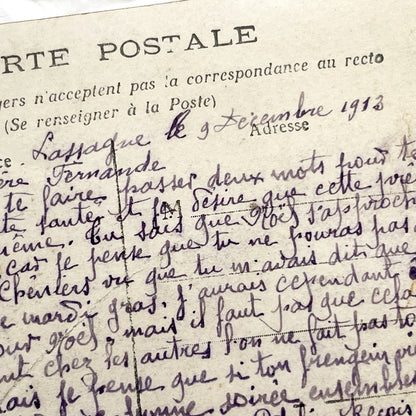 RTE POSTALE
gers n'acceptent pas la correspondance au recto
(Se renseigner à la Poste)
ce. Lassagne le 9 Décembre 1913
Adresse
ère Fernande
te faire passer deux mots pour te
té santé et je désire que cette pré
même. Tu sais que Noël s'approch
car je pense que tu ne pouras pas
Cheniers vu que tu m'avais dit que
e mardi gras. j'aurais cependant
our Noël; mais il faut pas que cela
nt chez les autres l'on ne fait pas to
ais je pense que si ton frengein vi
bonne soirée ensemble